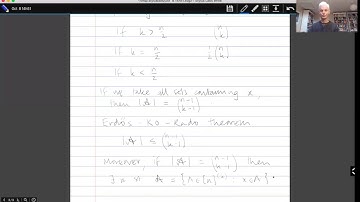 if k > n/2 (n k)
if k = n/2 1/2 (n k)
if k < n/2
If we take all sets containing x,
then |A| = (n-1 k-1)
Erdos - Ko - Rado theorem
|A| ≤ (n-1 k-1)
Moreover, if |A| = (n-1 k-1) then
∃ x A = {A ∈ [n]^(k) : x ∈ A}